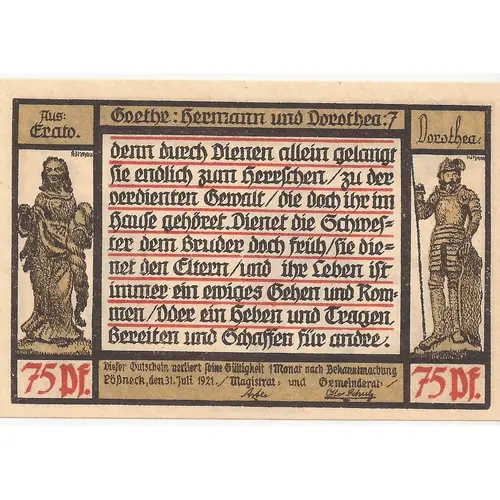 Aus:
Erato.
Goethe: Hermann und Dorothea: 7
Dorothea.
denn durch Dienen allein gelangt
sie endlich zum Herrschen / zu der
verdienten Gewalt / die doch ihr im
Hause gehöret. Dienet die Schwes-
ter dem Bruder doch früh / sie die-
net den Eltern / und ihr Leben ist
immer ein ewiges Gehen und Kom-
men / Oder ein Heben und Tragen,
Bereiten und Schaffen für andre.
75 Pf.
Dieser Gutschein verliert seine Gültigkeit 1 Monat nach Bekanntmachung
Pößneck, den 31. Juli 1921. / Magistrat: und Gemeinderat: /
75 Pf.